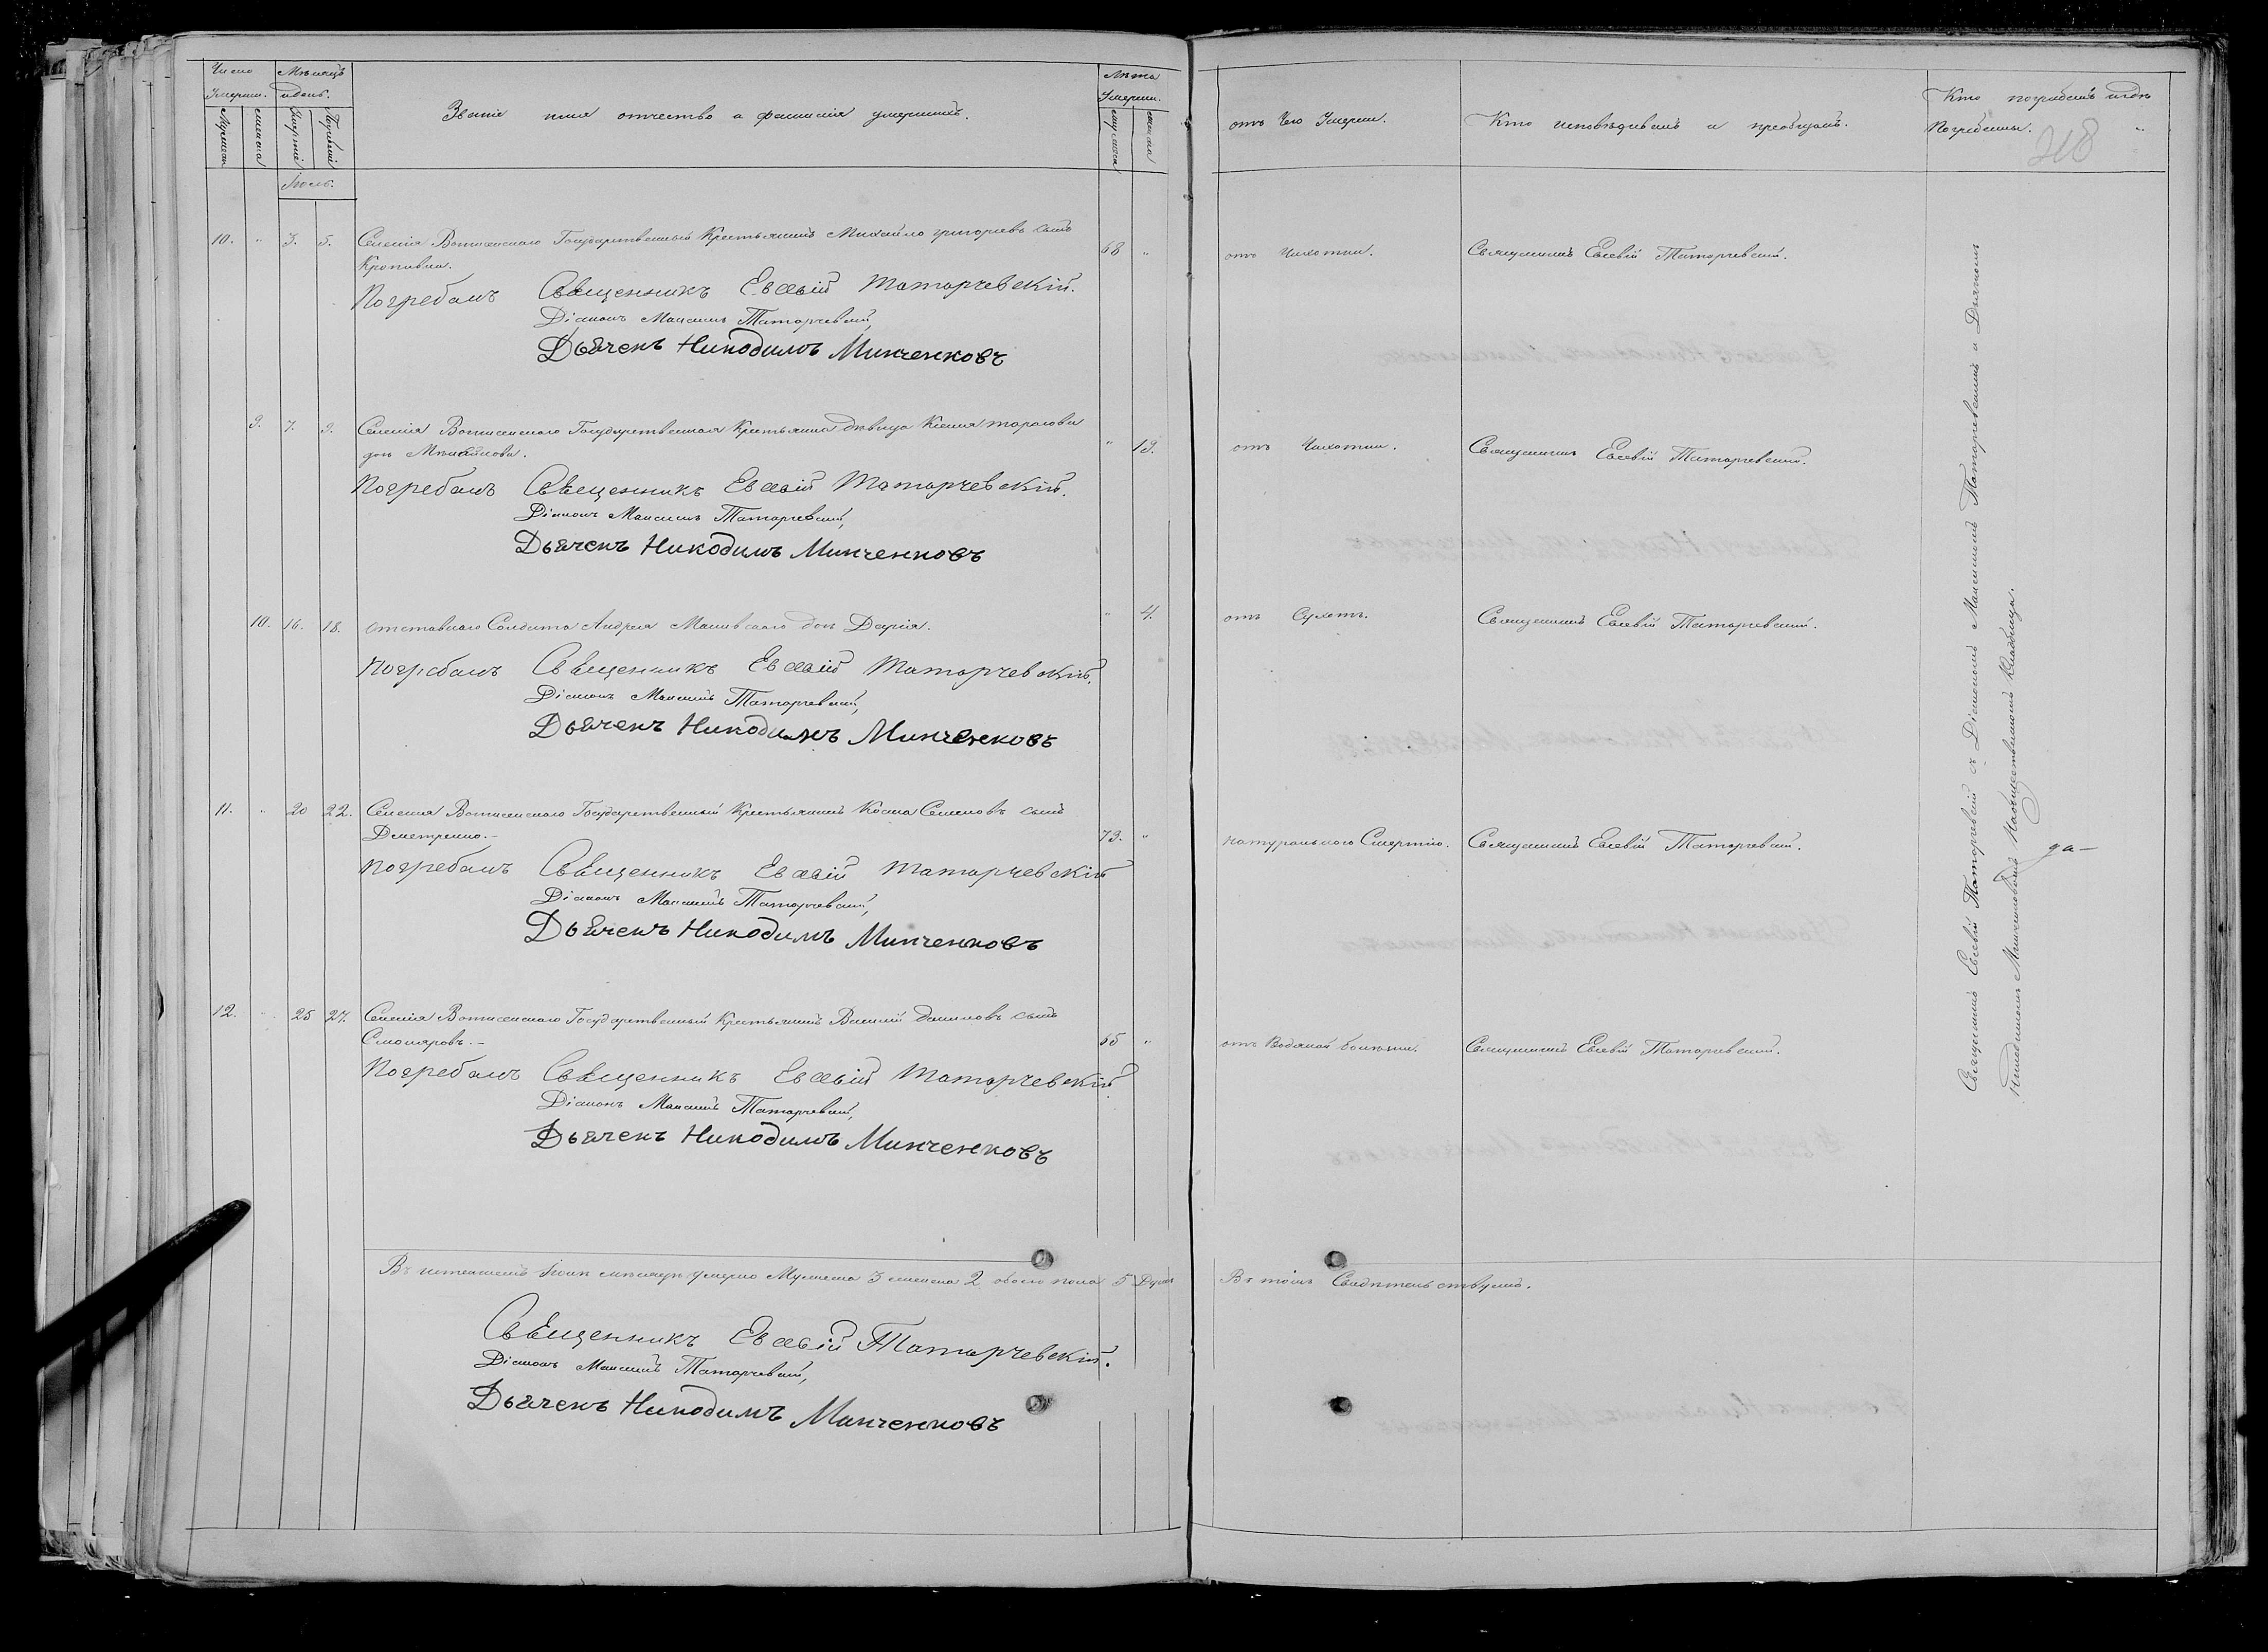 Число Умерш.
Мѣсяцъ и день.
Званіе имя отчество и фамилія умершихъ.
Лѣта Умерш.
Мужеска
женска
Смерти
Погребенія
мужеска
женска
Іюль.
10. " 3. 5. Селенія Государственный Крестьянинъ Михайло григорьевъ сынъ 68 "
Кропивка.
Погребалъ Священникъ Евсевій Татарчевскій.
Діаконъ Максимъ Татарчевскій,
Дьячекъ Никодимъ Минченковъ
9. 7. 9. Селенія Государственная Крестьянка дѣвица Ксенія
дочь " 19.
Погребалъ Священникъ Евсевій Татарчевскій.
Діаконъ Максимъ Татарчевскій,
Дьячекъ Никодимъ Минченковъ
10. 16. 18. отставнаго Солдата Андрея дочь Дарія. " 4.
Погребалъ Священникъ Евсевій Татарчевскій.
Діаконъ Максимъ Татарчевскій,
Дьячекъ Никодимъ Минченковъ
11. " 20 22. Селенія Государственный Крестьянинъ Косма Семеновъ сынъ
Дметренко.- 73. "
Погребалъ Священникъ Евсевій Татарчевскій
Діаконъ Максимъ Татарчевскій,
Дьячекъ Никодимъ Минченковъ
12. " 25 27. Селенія Государственный Крестьянинъ Василій Даниловъ сынъ
Смоляровъ.- 65 "
Погребалъ Священникъ Евсевій Татарчевскій.
Діаконъ Максимъ Татарчевскій,
Дьячекъ Никодимъ Минченковъ
Въ Іюлѣ мѣсяцѣ умерло Мужеска 3 женска 2 обоего пола 5 Душъ
Священникъ Евсевій Татарчевскій.
Діаконъ Максимъ Татарчевскій,
Дьячекъ Никодимъ Минченковъ
отъ Чего Умерли.
Кто исповѣдывалъ и пріобщалъ.
Кто погребалъ и гдѣ
Погребены.
218
отъ Чихотки. Священникъ Евсевій Татарчевскій.
отъ Чихотки. Священникъ Евсевій Татарчевскій.
отъ Сухотъ. Священникъ Евсевій Татарчевскій.
натуральною Смертію. Священникъ Евсевій Татарчевскій.
отъ Водяной болѣзни. Священникъ Евсевій Татарчевскій.
Въ томъ Свидѣтельствуемъ.
Священникъ Евсевій Татарчевскій съ Діакономъ Максимомъ Татарчевскимъ и Дьячкомъ
Никодимомъ Минченковымъ На общественномъ Кладбищѣ.
да-